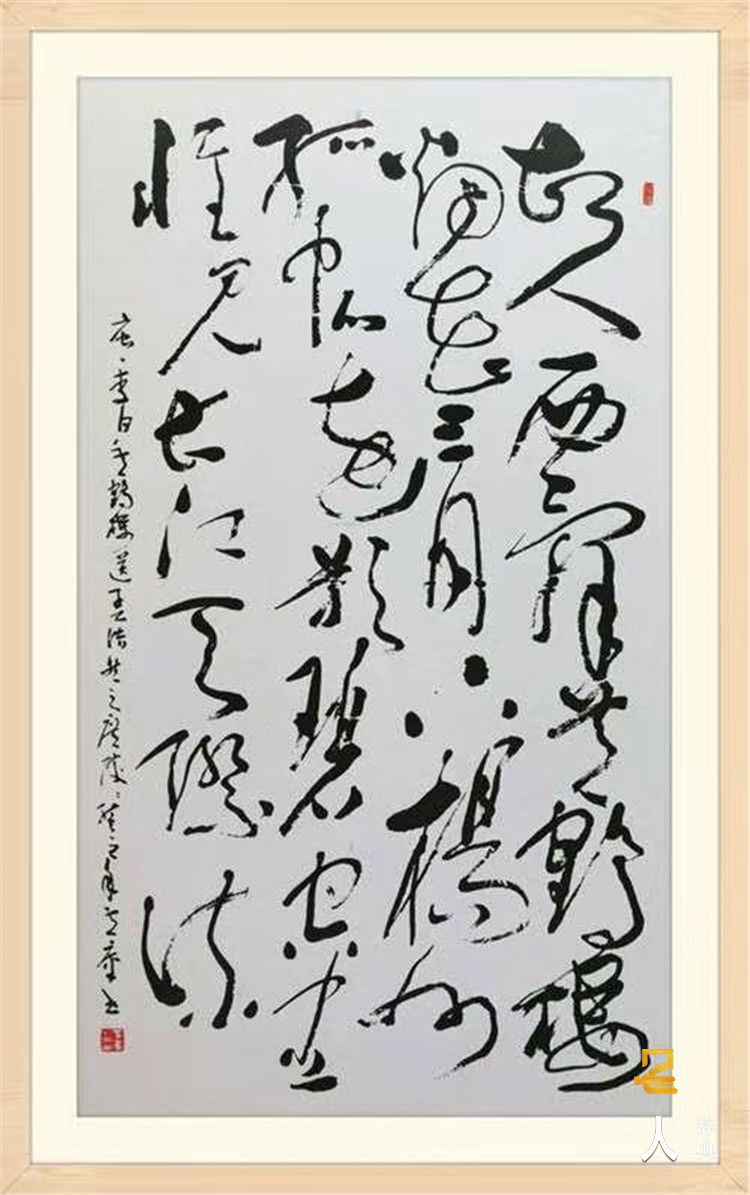 故人西辭黄鶴樓
烟花三月下楊州
孤帆遠影碧空盡
惟見長江天際流
唐·李白黄鶴樓送孟浩然之廣陵
人